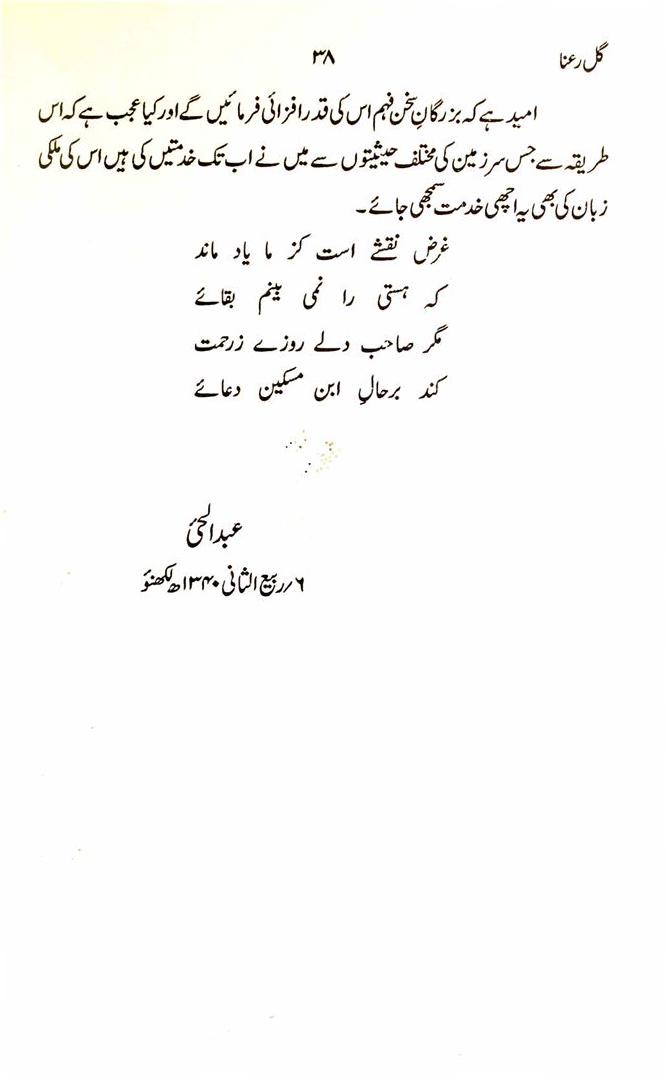 گل رعنا ۳۸
امید ہے کہ بزرگانِ سخن فہم اس کی قدر افزائی فرمائیں گے اور کیا عجب ہے کہ اس
طریقہ سے جس سرزمین کی مختلف حیثیتوں سے میں نے اب تک خدمتیں کی ہیں اس کی ملکی
زبان کی بھی یہ اچھی خدمت سمجھی جائے۔
غرض نقشے است کز ما یاد ماند
کہ ہستی را نمی بینم بقائے
مگر صاحب دلے روزے زرحمت
کند برحالِ ابن مسکین دعائے
عبدالحئ
۶/ربیع الثانی ۱۳۴۰ھ لکھنؤ